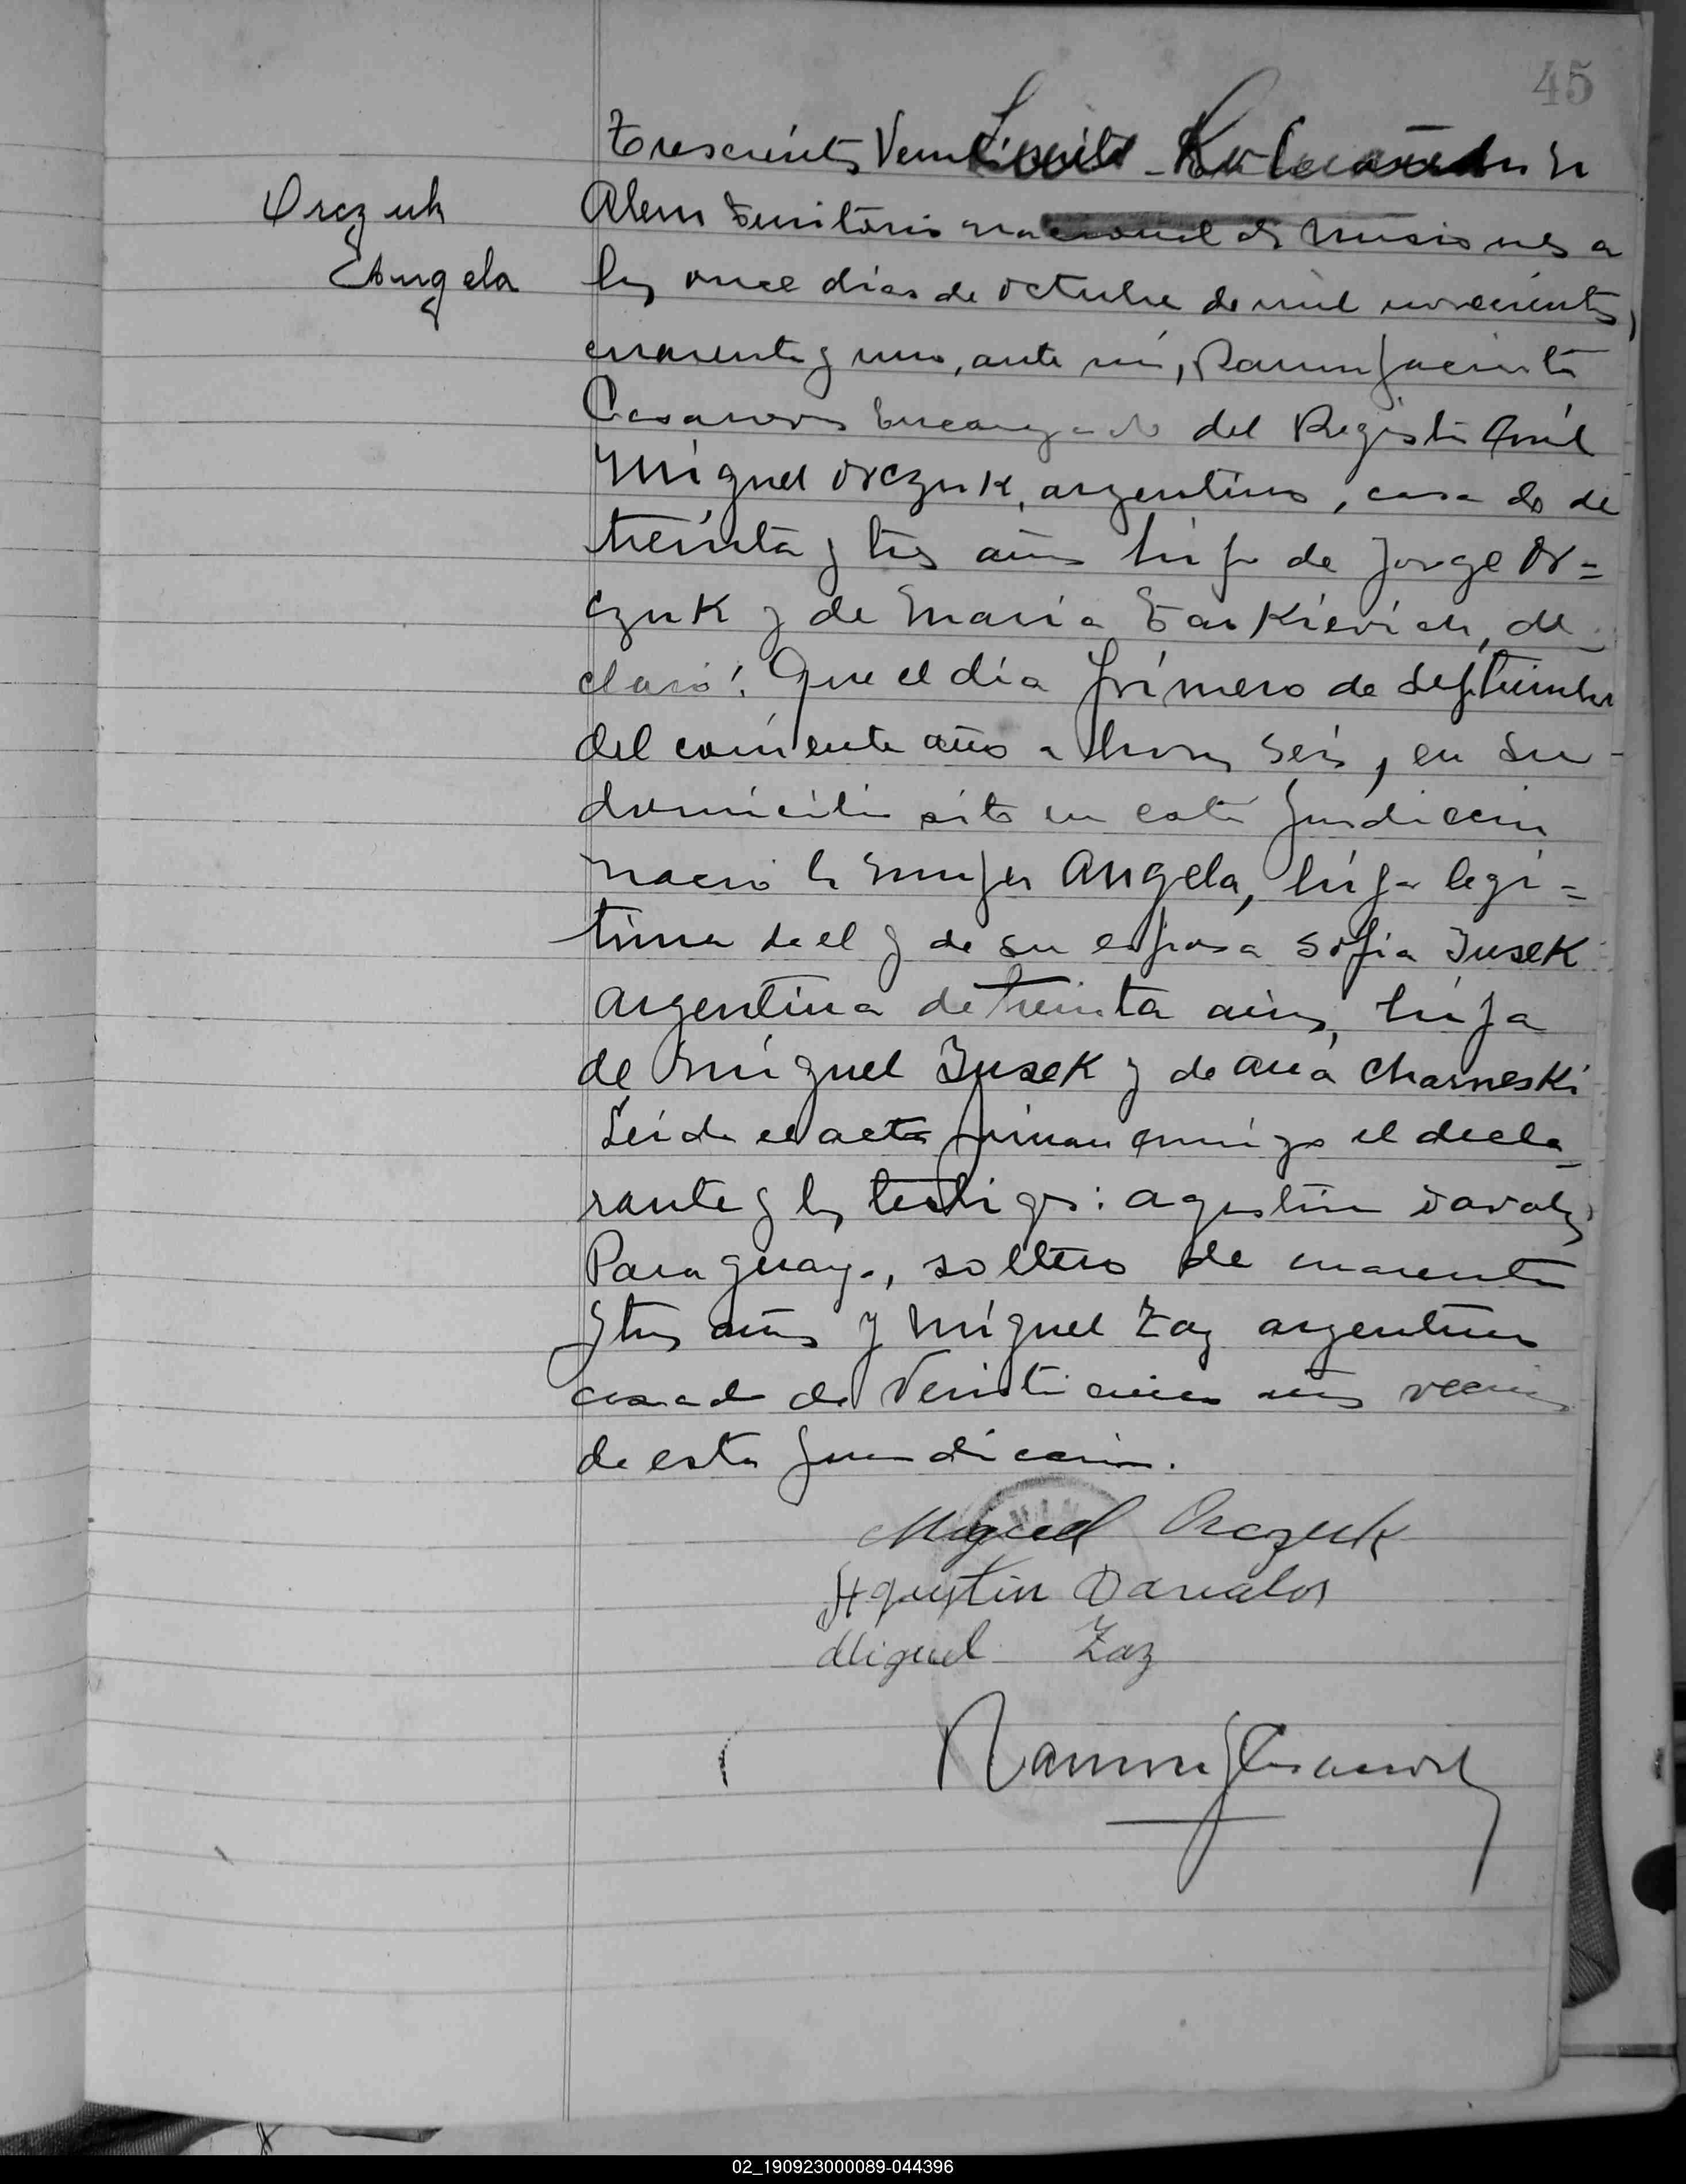 45
Trescientos Veinti - En Leandro N
Orczuk
Angela
Alem Territorio nacional de Misiones a
los once dias de octubre de mil novecientos
cuarenta y uno, ante mi, Ramon Jacinto
Casanova Encargado del Registro Civil
Miguel Orczuk, argentino, casado de
treinta y tres años hijo de Jorge Or=
czuk y de Maria, de_
claró: Que el dia primero de septiembre
del corriente año a horas seis, en su
domicilio sito en esta jurisdiccion
nacio la mujer Angela, hija legi=
tima de el y de su esposa Sofia Jusek
argentina de treinta años, hija
de Miguel Jusek y de Ana Charneski
Leida el acta firman conmigo el decla_
rante y los testigos: Agustin Davalos
Paraguayo, soltero de cuarenta
y tres años y Miguel Zaz argentino
casado de Veinticinco años vecinos
de esta jurisdiccion.
Miguel Orczuk
Agustin Davalos
Miguel Zaz
Ramon J Casanova
02_190923000089-044396